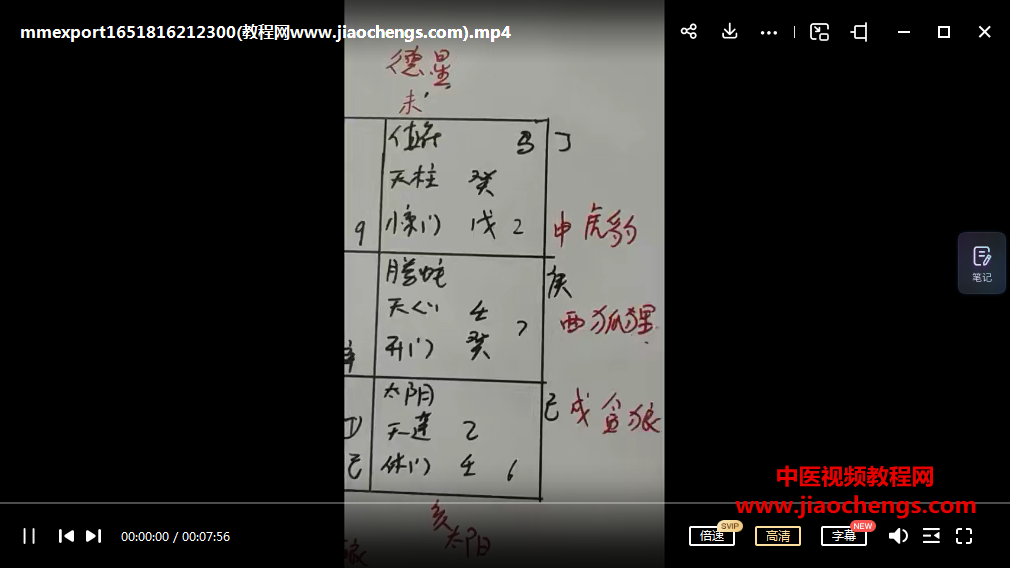 mmexport1651816212300(教程网www.jiaochengs.com).mp4
德星
未
值符
马
丁
天柱 癸
9
惊门 戊 2
申 虎豹
腾蛇
天心 壬
7
酉 狐狸
开门 癸
太阴
己 戌 贪狼
天蓬 乙
己
休门 壬 6
亥
太阴
狼
笔记
中医视频教程网
www.jiaochengs.com
00:00:00 / 00:07:56
倍速
SVIP
高清
字幕
NEW